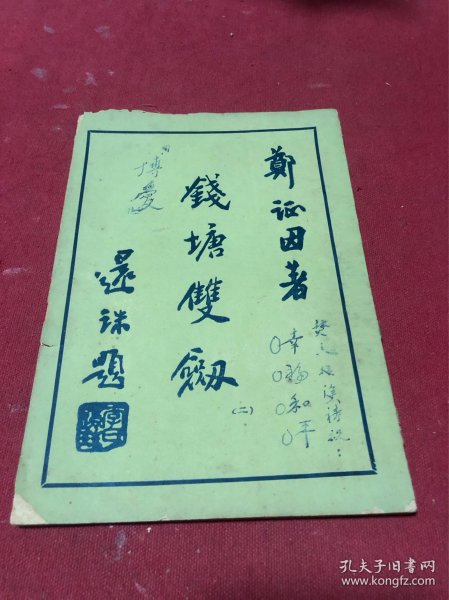 鄭证因著
錢塘雙劔
(二)
還珠題
博愛
幸福和平
孔夫子旧书网
www.kongfz.com